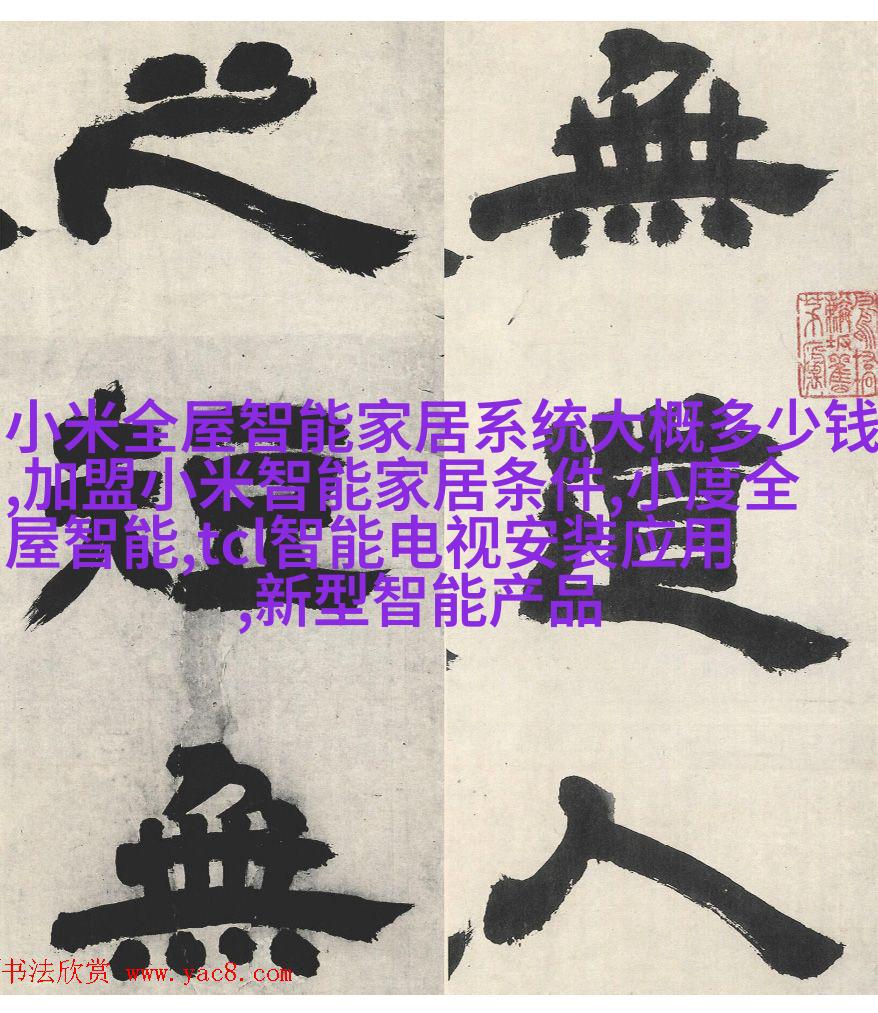 無道人
之短無
小米全屋智能家居系统大概多少钱
,加盟小米智能家居条件,小度全
屋智能,tcl智能电视安装应用
,新型智能产品
书法欣赏 www.yac8.com